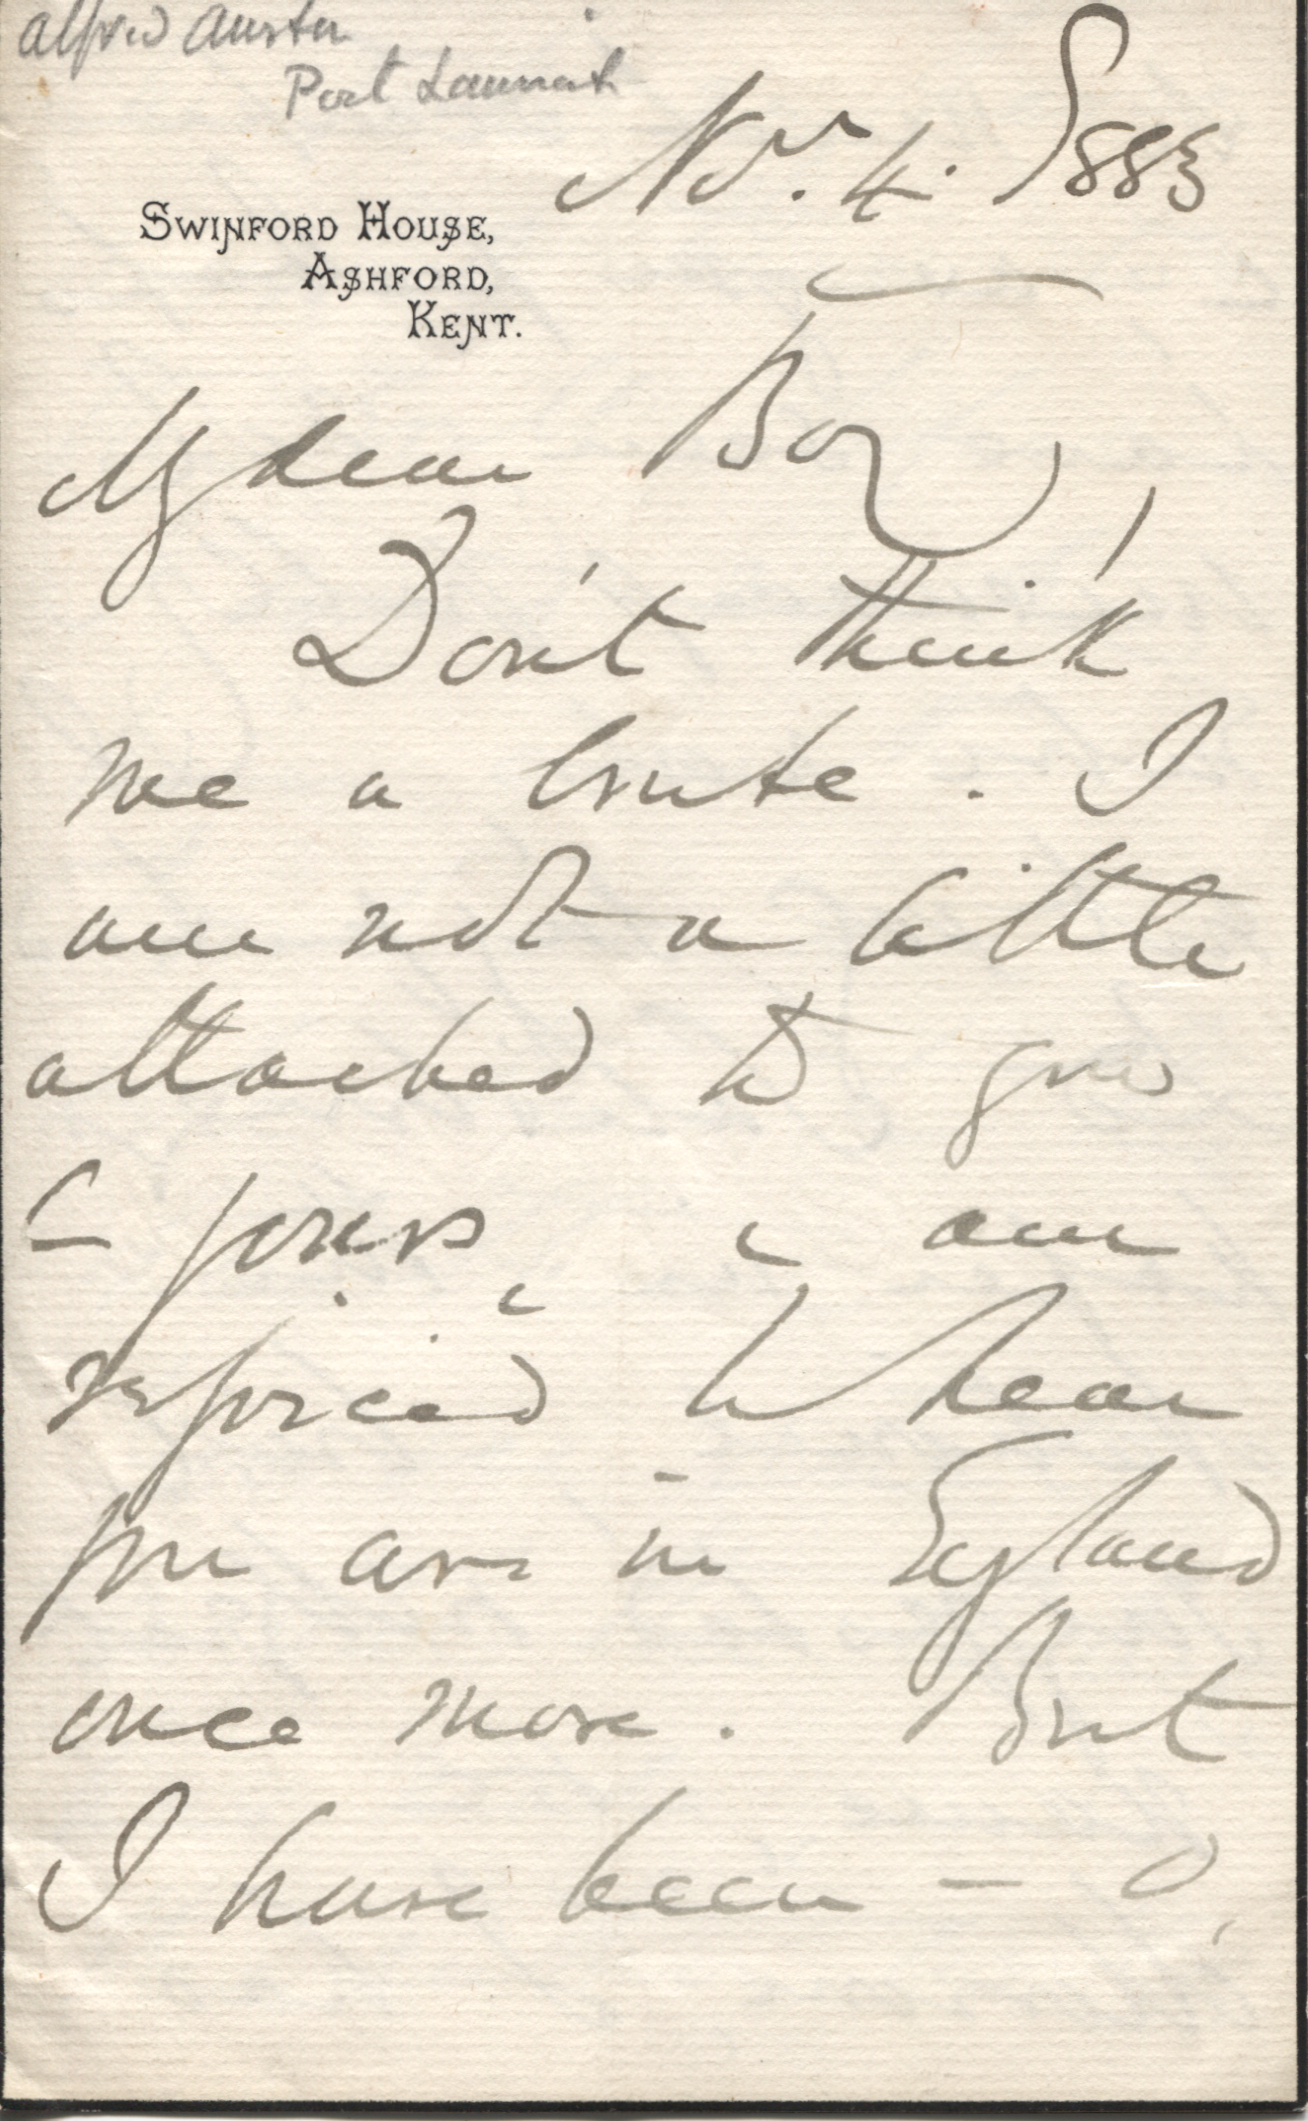 Alfred Austin
Poet Laureate
Nov. 4. 1883
Swinford House,
Ashford,
Kent.
My dear Boy,
Don't think
me a brute. I
am not a little
attached to you
& yours, & am
rejoiced to hear
you are in England
once more. But
I have been — O,